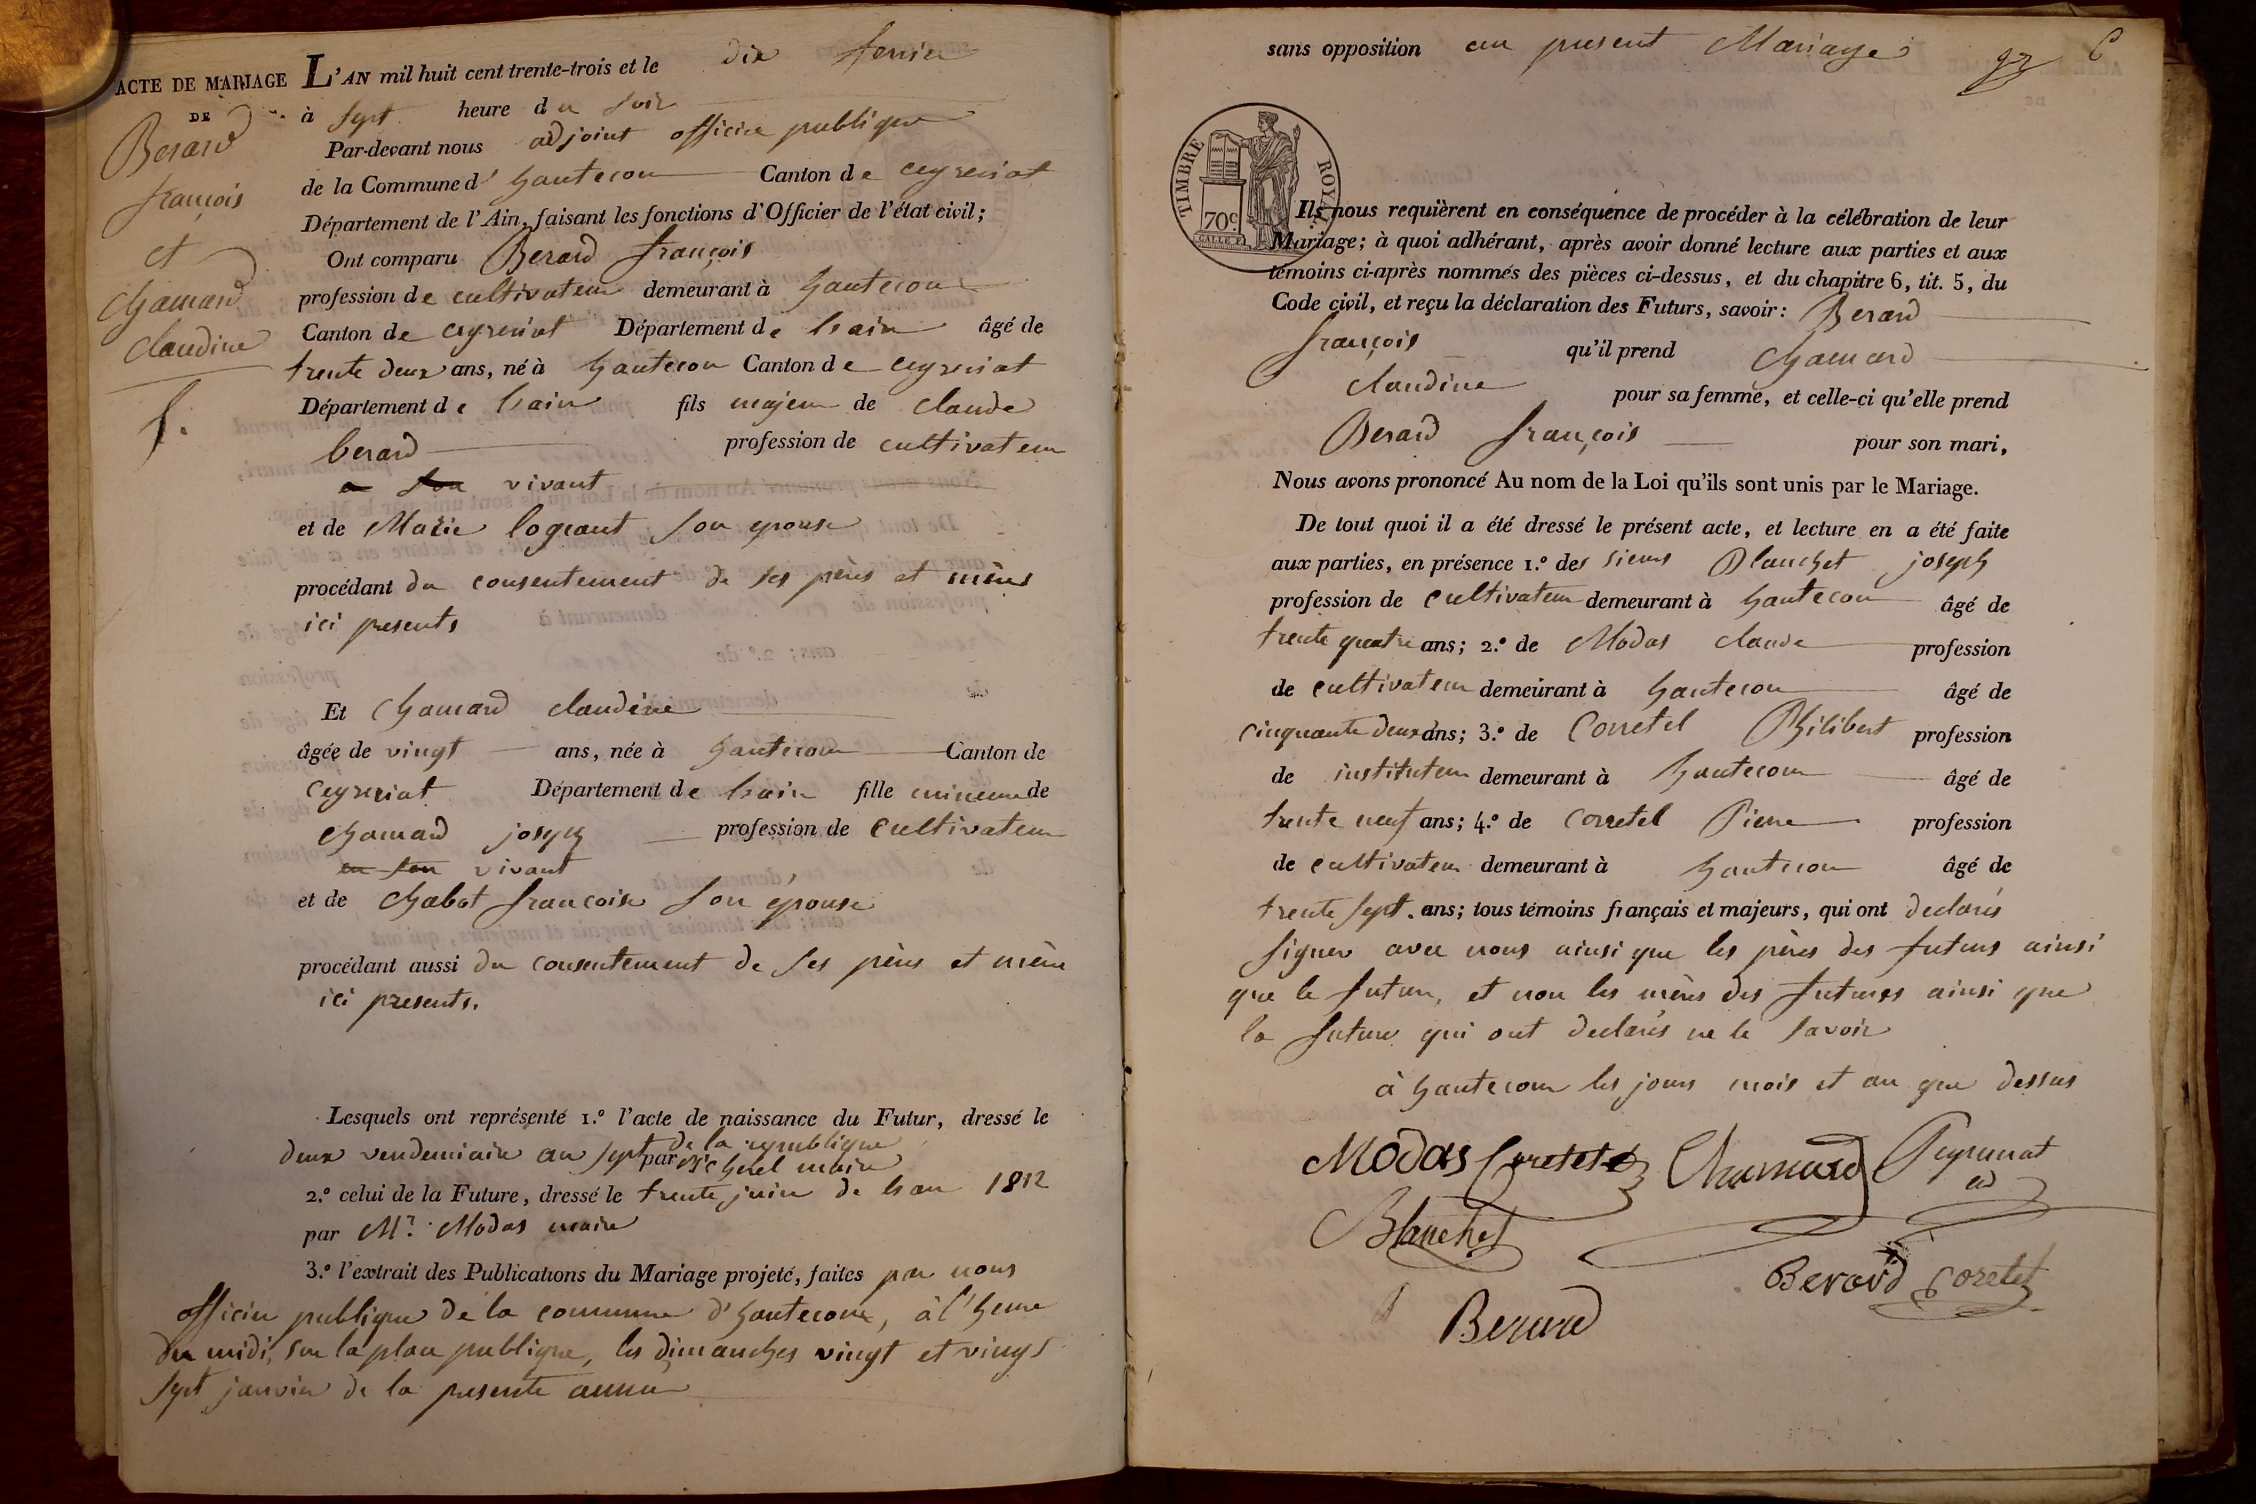 ACTE DE MARIAGE
DE
Berard
françois
et
Chamard
claudine
L'AN mil huit cent trente-trois et le dix fevrier
à sept heure du soir
Par-devant nous adjoint officier publique
de la Commune d' hautecour Canton de ceyzeriat
Département de l'Ain, faisant les fonctions d'Officier de l'état civil;
Ont comparu Berard françois
profession de cultivateur demeurant à hautecour
Canton de ceyzeriat Département de lain âgé de
trente deux ans, né à hautecour Canton de ceyzeriat
Département de lain fils majeur de claude
berard profession de cultivateur
vivant
et de Marie logeant son epouse
procédant du consentement de ses pères et mères
ici presents
Et Chamard claudine
âgée de vingt ans, née à hautecour Canton de
ceyzeriat Département de lain fille mineure de
chamard joseph profession de cultivateur
en son vivant
et de chabot francoise son épouse
procédant aussi du consentement de ses pères et mère
ici presents.
Lesquels ont représenté 1.º l'acte de naissance du Futur, dressé le
deux vendemiaire an sept de la republique
par maire
2.º celui de la Future, dressé le trente juin de lan 1812
par Mr. Modas maire
3.º l'extrait des Publications du Mariage projeté, faites par nous
officier publique de la commune d'hautecour, à l'heure
du midi, sur la place publique, les dimanches vingt et vingt
sept janvier de la presente année
sans opposition au present Mariage
TIMBRE ROYAL
70c.
Ils nous requièrent en conséquence de procéder à la célébration de leur
Mariage; à quoi adhérant, après avoir donné lecture aux parties et aux
témoins ci-après nommés des pièces ci-dessus, et du chapitre 6, tit. 5, du
Code civil, et reçu la déclaration des Futurs, savoir: Berard
françois qu'il prend chamard
claudine pour sa femme, et celle-ci qu'elle prend
Berard françois pour son mari,
Nous avons prononcé Au nom de la Loi qu'ils sont unis par le Mariage.
De tout quoi il a été dressé le présent acte, et lecture en a été faite
aux parties, en présence 1.º des sieurs Blanchet joseph
profession de cultivateur demeurant à hautecour âgé de
trente quatre ans; 2.º de Modas claude profession
de cultivateur demeurant à hautecour âgé de
cinquante deux ans; 3.º de Corretel Philibert profession
de instituteur demeurant à hautecour âgé de
trente neuf ans; 4.º de Corretel Pierre profession
de cultivateur demeurant à hautecour âgé de
trente sept. ans; tous témoins français et majeurs, qui ont declarés
signer avec nous ainsi que les pères des futurs ainsi
que le futur, et non les mères des futures ainsi que
la future qui ont declarés ne le savoir
à hautecour les jours mois et an que dessus
Modas Coretet Chamard Peyrunat
ad
Blanchet
Berard Coretet
Berard